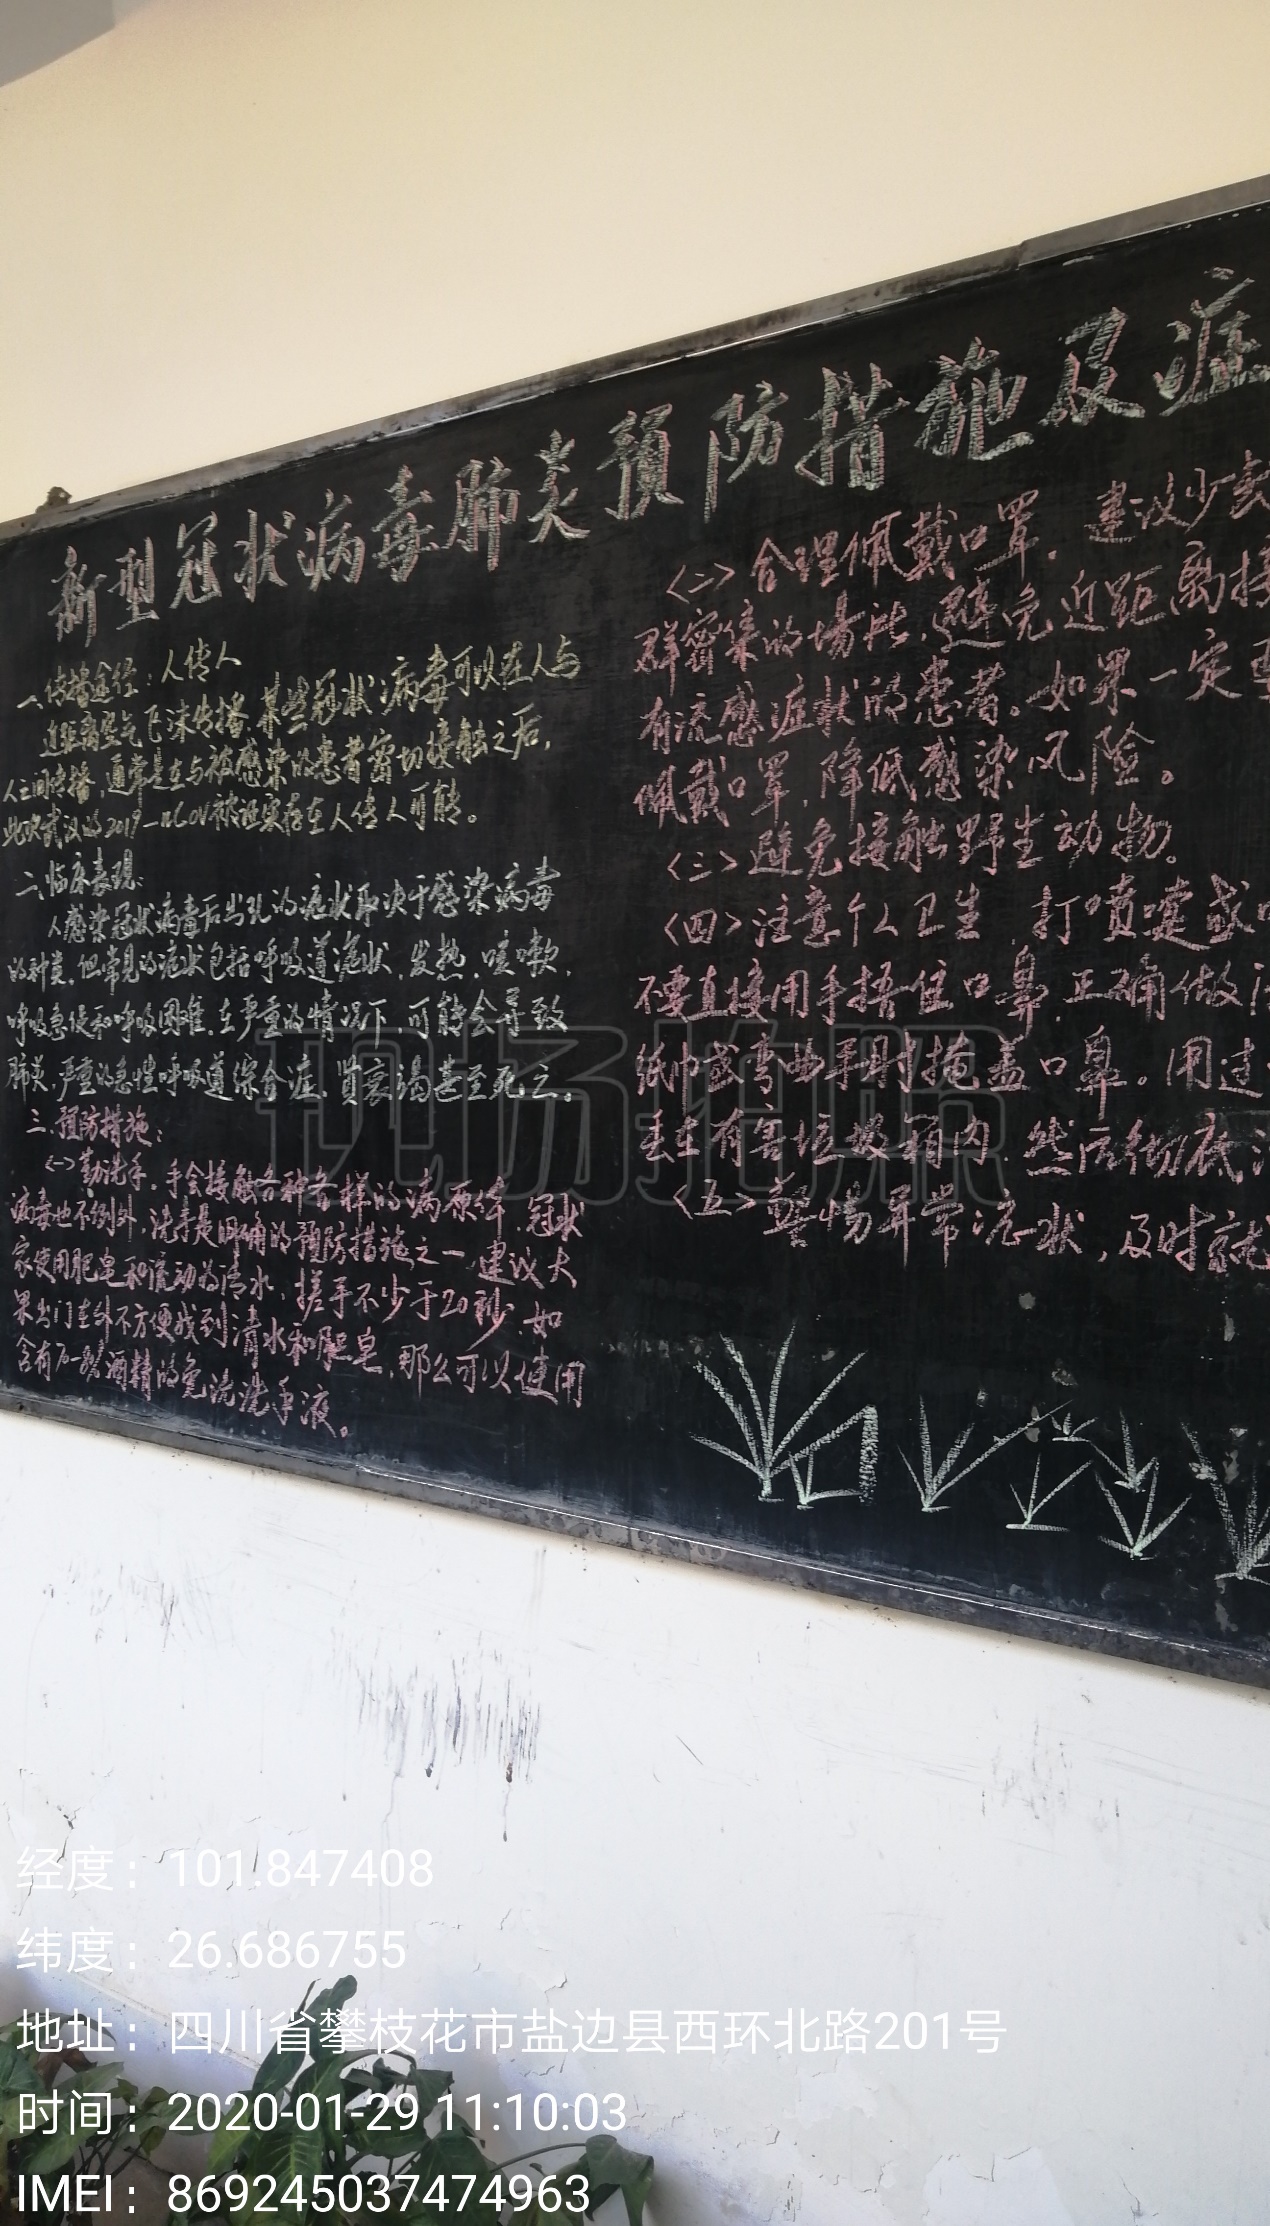 新型冠状病毒肺炎预防措施及症
一、传播途径：人传人
近距离空气飞沫传播，某些冠状病毒可以在人与
人之间传播，通常是在与被感染的患者密切接触之后，
此次武汉的2019-nCoV被证实存在人传人可能。
二、临床表现：
人感染冠状病毒后出现的症状取决于感染病毒
的种类，但常见的症状包括呼吸道症状，发热，咳嗽，
呼吸急促和呼吸困难，在严重的情况下，可能会导致
肺炎，严重的急性呼吸道综合症，肾衰竭甚至死亡。
三、预防措施：
<一>勤洗手，手会接触各种各样的病原体，冠状
病毒也不例外，洗手是明确的预防措施之一，建议大
家使用肥皂和流动的清水，搓手不少于20秒，如
果出门在外不方便找到清水和肥皂，那么可以使用
含有酒精的免洗洗手液。
<二>合理佩戴口罩，建议少去
群密集的场所，避免近距离接
有流感症状的患者。如果一定要
佩戴口罩，降低感染风险。
<三>避免接触野生动物。
<四>注意个人卫生，打喷嚏或
不要直接用手捂住口鼻，正确做法
纸巾或弯曲手肘掩盖口鼻。用过
丢在有害垃圾箱内，然后彻底
<五>警惕异常症状，及时就
现场拍照
经度：101.847408
纬度：26.686755
地址：四川省攀枝花市盐边县西环北路201号
时间：2020-01-29 11:10:03
IMEI：869245037474963